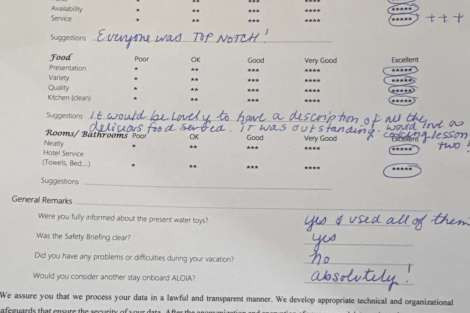 Availability * ** *** **** *****
Service * ** *** **** ***** +++
Suggestions Everyone was TOP NOTCH!
Food Poor OK Good Very Good Excellent
Presentation * ** *** **** *****
Variety * ** *** **** *****
Quality * ** *** **** *****
Kitchen (clean) * ** *** **** *****
Suggestions it would be lovely to have a description of all the
delicious food served. IT was outstanding. would love a
cooking lesson
Rooms/ Bathrooms Poor OK Good Very Good Excellent
or two!
Neatly * ** *** **** *****
Hotel Service
(Towels, Bed....) * ** *** **** *****
Suggestions
General Remarks
Were you fully informed about the present water toys? yes & used all of them
Was the Safety Briefing clear? yes
Did you have any problems or difficulties during your vacation? no
Would you consider another stay onboard ALOIA? absolutely!
We assure you that we process your data in a lawful and transparent manner. We develop appropriate technical and organizational
safeguards that ensure the security of your data. After the